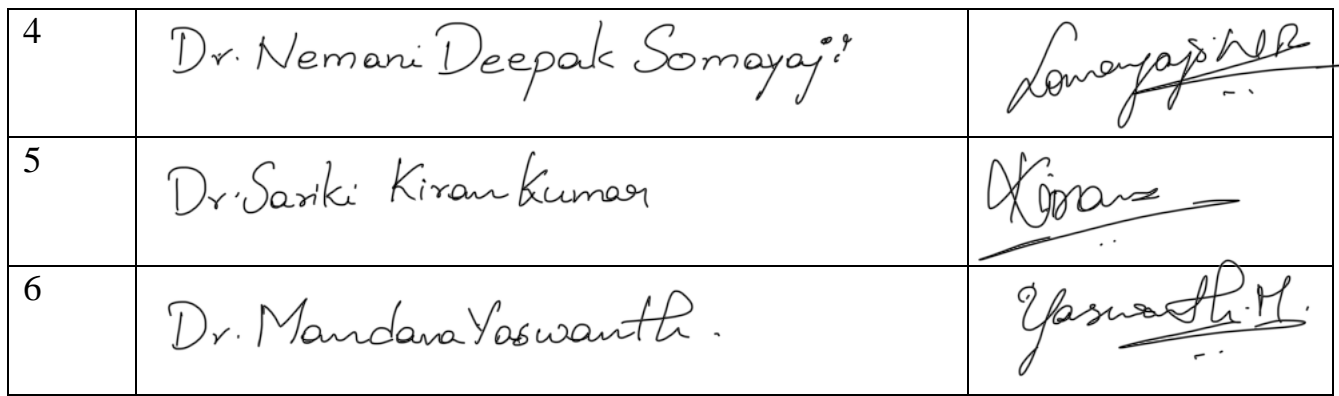 4 Dr. Nemani Deepak Somayaji Somayaji NR
5 Dr. Sariki Kiran Kumar Kiran
6 Dr. Mandana Yaswanth. Yaswanth.M.